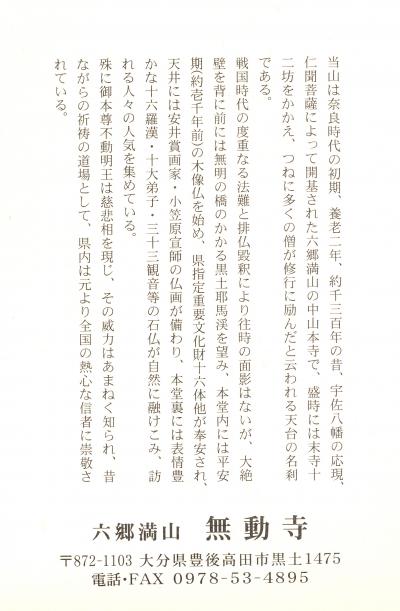 当山は奈良時代の初期、養老二年、約千三百年の昔、宇佐八幡の応現、
仁聞菩薩によって開基された六郷満山の中山本寺で、盛時には末寺十
二坊をかかえ、つねに多くの僧が修行に励んだと云われる天台の名刹
である。
戦国時代の度重なる法難と排仏毀釈により往時の面影はないが、大絶
壁を背に前には無明の橋のかかる黒土耶馬渓を望み、本堂内には平安
期(約壱千年前)の木像仏を始め、県指定重要文化財十六体他が奉安され、
天井には安井賞画家・小笠原宣師の仏画が備わり、本堂裏には表情豊
かな十六羅漢・十大弟子・三十三観音等の石仏が自然に融けこみ、訪
れる人々の人気を集めている。
殊に御本尊不動明王は慈悲相を現じ、その威力はあまねく知られ、昔
ながらの祈祷の道場として、県内は元より全国の熱心な信者に崇敬さ
れている。
六郷満山 無動寺
〒872-1103 大分県豊後高田市黒土1475
電話・FAX 0978-53-4895